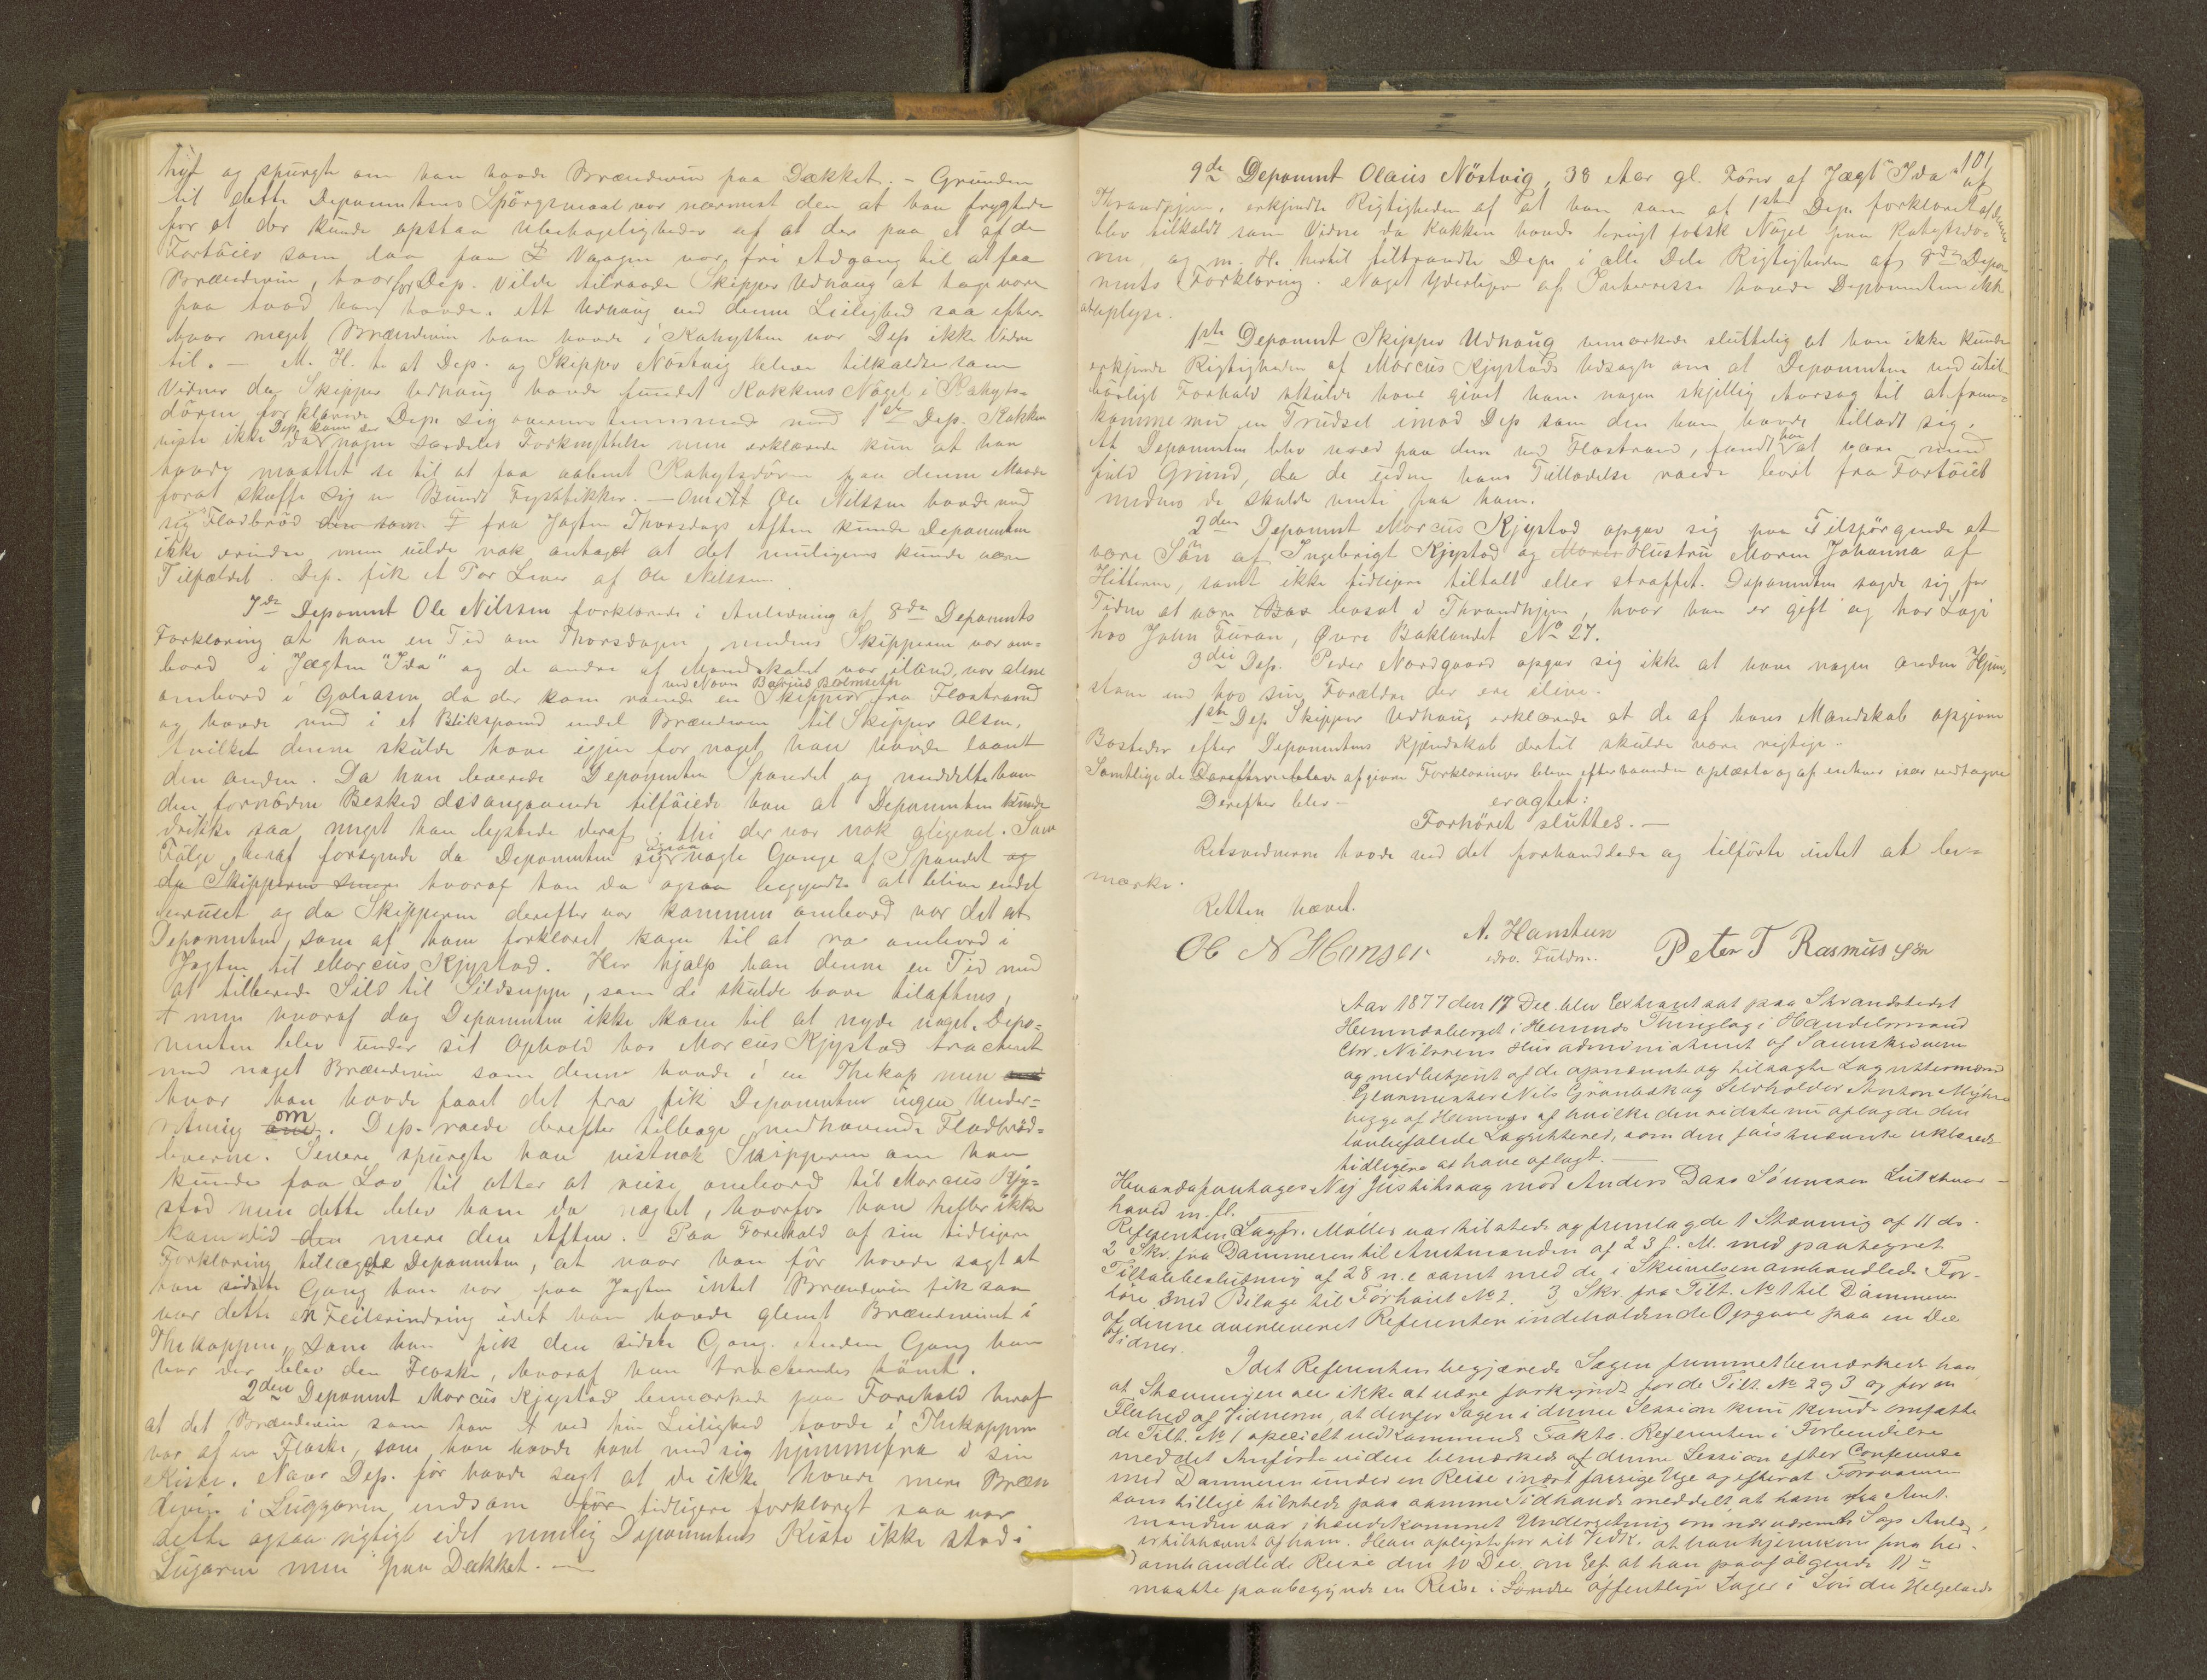 og spurgte om han havde Brændeviin paa Dækket. - Grunden
til dette Deponentens Spörgsmaal var nærmest den at han frygtede
for at der kunde opstaa Ubehageligheder af at der paa et af de
Fartöier som laa paa Vaagen var fri Adgang til at faa
Brændeviin, hvorfor Dep. vilde tilraade Skipper Udhaug at tage vare
paa hvad han havde. At Udhaug ved denne Leilighed saa efter
hvor meget Brændeviin han havde i Kahytten var Dep ikke Vidne
til. - M. H. t. at Dep. og Skipper Nöstvig bleve tilkaldte som
Vidner da Skipper Udhaug havde fundet Kokkens Nögel i Kahyts-
dören forklarede Dep. sig overensstemmende med 1ste Dep. Kokken
viste ikke da nogen særdeles Forknyttelse men erklærede kun at han
havde maattet se til at faa aabnet Kahytsdören paa denne Maade
forat skaffe sig en Bundt Fyrstikker. - Om Ole Nilssen havde med
sig Fladbröd fra Jagten Thorsdags Aften kunde Deponenten
ikke erindre men vilde nok antaget at det muligens kunde være
Tilfældet. Dep. fik et Par Lever af Ole Nilssen.
7de Deponent Ole Nilssen forklarede i Anledning af 8de Deponents
Forklaring at han en Tid om Thorsdagen, medens Skipperen var om-
bord i Jægten "Ida" og de andre af Mandskabet var iland, var alene
ombord i Galeasen da der kom roende en Skipper fra Flostrand
og havde med i et Blikspand endel Brændeviin til Skipper Olsen,
hvilket denne skulde have igjen for noget han havde laant
den anden. Da han leverede Deponenten Spandet og meddelte ham
den fornödne Besked desangaaende tilföiede han at Deponenten kunde
drikke saa meget han lystede deraf; thi der var nok aligevel. Som
Fölge heraf forsynede da Deponenten sig nogle Gange af Spandet
hvoraf han da ogsaa begyndte at blive endel
beruset og da Skipperen derefter var kommen ombord var det at
Deponenten, som af ham forklaret kom til at ro ombord i
Jagten til Marcus Kjystad. Her hjalp han denne en Tid med
at tilberede Sild til Sildsuppe, som de skulde have tilaftens,
men hvoraf dog Deponenten ikke kom til at nyde noget. Depo-
nenten blev under sit Ophold hos Marcus Kjystad tracteret
med noget Brændeviin som denne havde i en Thekop men
hvor han havde faaet det fra fik Deponenten ingen Under-
retning om. Dep. roede derefter tilbage medhavende Fladbröd-
leverne. Senere spurgte han vistnok Skipperen om han
kunde faa Lov til atter at reise ombord til Marcus Kjy-
stad men dette blev ham da nægtet, hvorfor han heller ikke
kom did mere den Aften. - Paa Forehold af sin tidligere
Forklaring tillægde Deponenten, at naar han för havde sagt at
han sidste Gang han var paa Jagten intet Brændeviin fik saa
var dette en Feilerindring idet han havde glemt Brændevinet i
Thekoppen, som han fik den sidste Gang. Anden Gang han
var der blev den Flaske, hvoraf han tracteredes tömt.
2den Deponent Marcus Kjystad bemærkede paa Forehold heraf
at det Brændeviin som han ved hin Leilighed havde i Thekoppen
var af en Flaske, som han havde havt med sig hjemmefra i sin
Kiste. Naar Dep. för havde sagt at de ikke havde mere Bræn
deviin i Luggaren endsom tidligere forklaret saa var
dette ogsaa rigtigt idet nemlig Deponentens Kiste ikke stod i
Lugaren men paa Dækket. -
101
9de Deponent Olaus Nöstvig, 38 Aar gl. Förer af Jægt "Ida" af
Throndhjem, erkjendte Rigtigheden af at han som af 1ste Dep. forklaret af denne
blev tilkaldt som Vidne da Kokken havde brugt falsk Nögel paa Kahytsdö-
ren, og m. H. hertil tiltraadte Dep. i alle Dele Rigtigheden af 8de Depo-
nents Forklaring. Noget Yderligere af Interesse havde Deponenten ikke
at oplyse.
1ste Deponent Skipper Udhaug bemærkede sluttelig at han ikke kunde
erkjende Rigtigheden af Marcus Kjystads Udsagn om at Deponenten ved util-
börligt Forhold skulde have givet ham nogen skjellig Aarsag til at frem-
komme med en Trudsel imod Dep som den han havde tilladt sig.
At Deponenten blev vred paa dem ved Flostrand, fandt han at være med
fuld Grund, da de uden hans Tilladelse roede bort fra Fartöiet
medens de skulde vente paa ham.
2den Deponent Marcus Kjystad opgav sig paa Tilspörgende at
være Sön af Ingebrigt Kjystad og Hustru Maren Johanna af
Hitteren, samt ikke tidligere tiltalt eller straffet. Deponenten sagde sig for
Tiden at være bosat i Throndhjem, hvor han er gift og har Logi
hos John Furan, Øvre Baklandet No 27.
3die Dep. Peder Nordgaard opgav sig ikke at have nogen anden Hjem-
stavn end hos sine Forældre der ere ilive.
1ste Dep. Skipper Udhaug erklærede at de af hans Mandskab opgivne
Bosteder efter Deponentens Kjendskab dertil skulde være rigtige.
Samtlige de afgivne Forklaringer bleve efterhaanden oplæste og af enhver især vedtagne
Derefter blev -
eragtet:
Forhöret sluttes. -
Retsvidnerne havde ved det forhandlede og tilförte intet at be-
mærke.
Retten hævet.
Ole N Hansen
A. Hansteen
edsv. Fuldm.
Peter T Rasmussön
Aar 1877 den 17 Dec. blev Extraret sat paa Strandstedet
Hemnæsberget i Hemnes Thinglag i Handelsmand
Chr. Nilssens Hus administreret af Sorenskriveren
og medbetjent af de opnævnte og tilsagte Lagrettesmænd
Glarmester Nils Grönbæk og Selvholder Anton Myhre
begge af Hemnes af hvilke den sidste nu aflagde den
lovbefalede Lagretteed, som den först nævnte erklærede
tidligere at have aflagt. -
Hvorda foretages Ny Justitssag mod Anders Dass Sörensen
m. fl.
Referenten Sagfr. Möller var tilstede og fremlagde 1 Stævning af 11 ds.
2 Skr. fra Dommeren til Amtmanden af 23 f. M. med paategnet
Tiltalebeslutning af 28 n.e samt med de i Skrivelsen omhandlede For-
hör med Bilage til Forhöret No 2. 3 Skr. fra Tilt. No 1 til Dommeren
af denne overleveret Referenten indeholdende Opgave paa en Del
Vidner.
Idet Referenten begjærede Sagen fremmet bemærkede han
at Stævningen sees ikke at være forkyndt for de Tilt. No 2 og 3 og for en
Flerhed af Vidnerne, at derfor Sagen i denne Session kun kunde omfatte
de Tilt. No 1 specielt vedkommende Fakta. Referenten i Forbindelse
med det Anförte videre bemærkede at denne Session efter Conference
med Dommeren under en Reise i nært forrige Uge og efterat Forsvareren
som tillige tilstede paa samme Tid havde meddelt, at ham fra Amt-
manden var ihændekommet Underretning om nærværende Sags Anlæg,
er tilstævnt af ham. Han oplyste for sit Vedk. at han hjemkom fra her-
omhandlede Reise den 10 Dec. om Eef. at han paafölgende 11te
maatte paabegynde en Reise i offentlige Sager i Söndre Helgelands